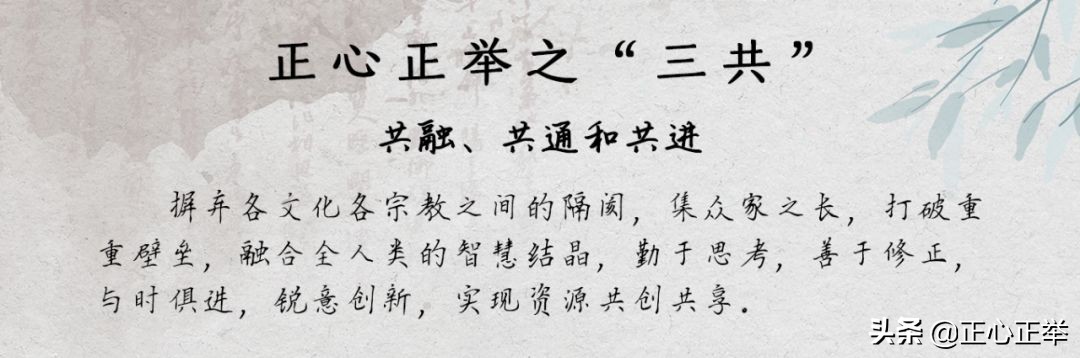 正心正举之“三共”
共融、共通和共进
摒弃各文化各宗教之间的隔阂，集众家之长，打破重
重壁垒，融合全人类的智慧结晶，勤于思考，善于修正，
与时俱进，锐意创新，实现资源共创共享．
头条 @正心正举